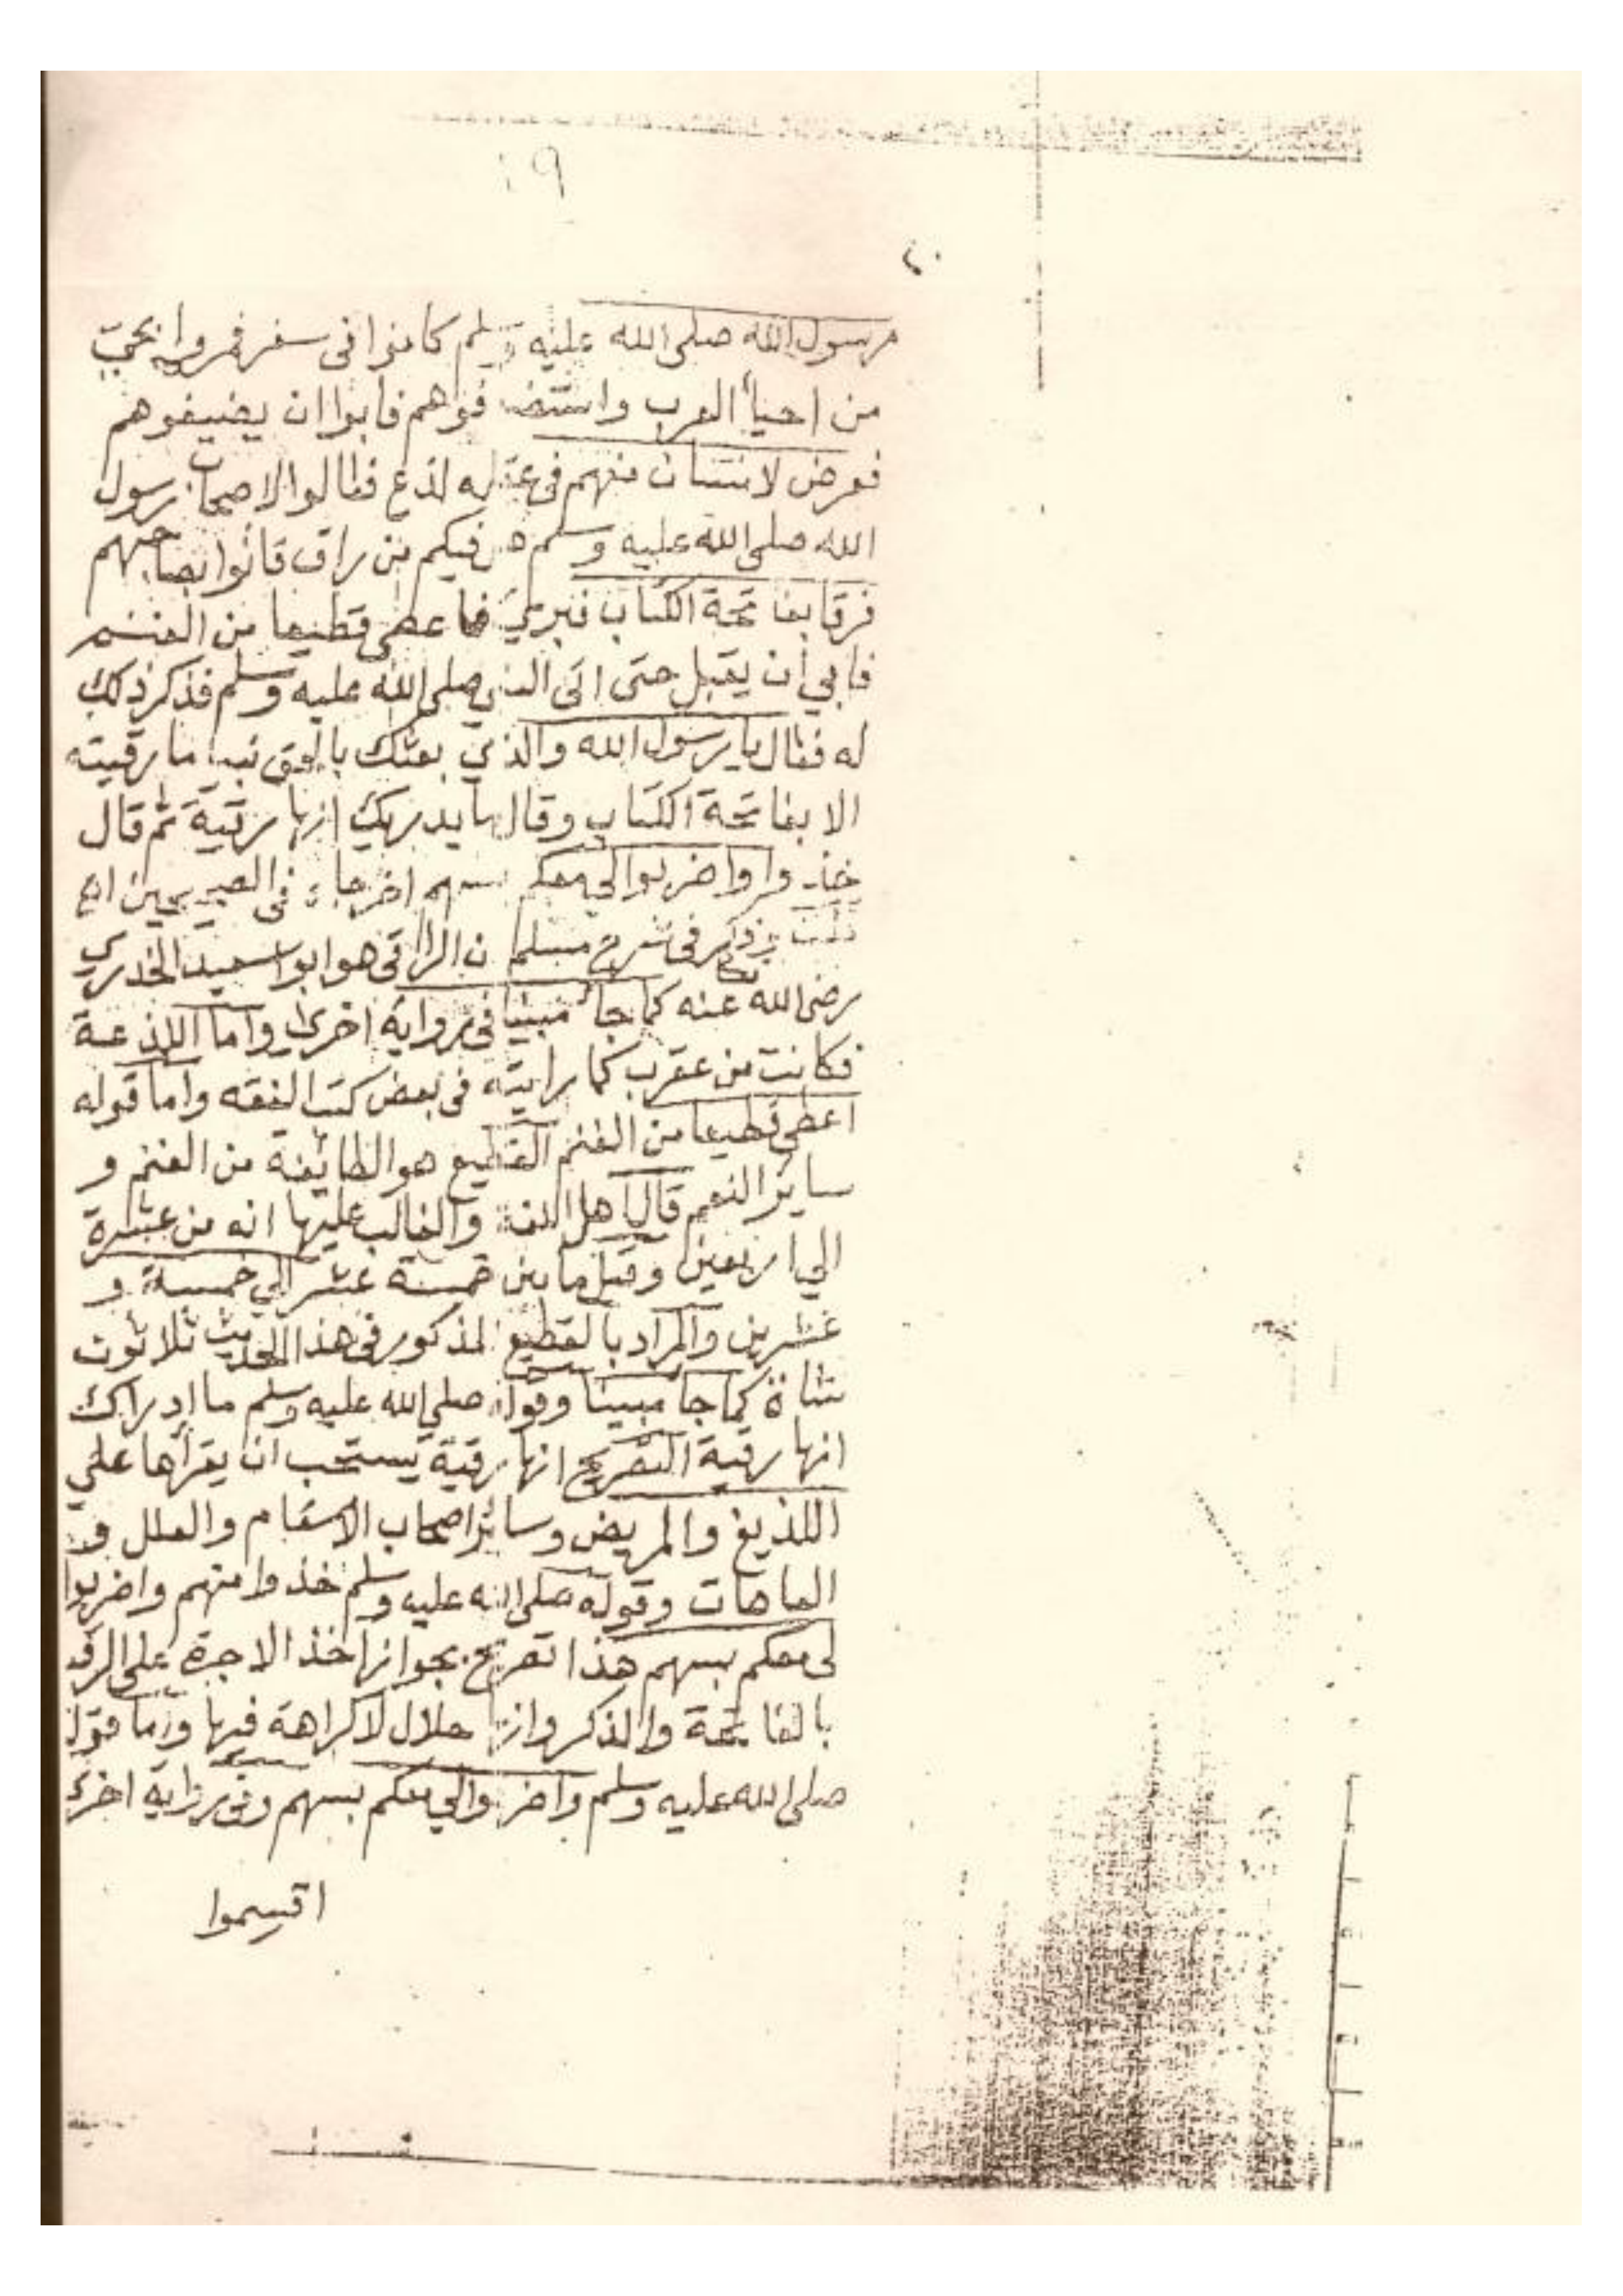 ١٩
٢٠
رسول الله صلى الله عليه وسلم كانوا فى سفر فمروا بحيّ
من احياء العرب واستضافوهم فابوا ان يضيفوهم
فعرض لانسان منهم فى عقله لدغ فقالوا لاصحاب رسول
الله صلى الله عليه وسلم هل فيكم من راق قاتوا بصاحبهم
فرقا بفاتحة الكتاب فبرئ فاعطى قطيعا من الغنم
فابي ان يقبل حتى اتى النبي صلى الله عليه وسلم فذكر ذلك
له فقال يا رسول الله والذي بعثك بالحق نبيا ما رقيته
الا بفاتحة الكتاب وقال ما يدريك انها رقية ثم قال
خذوا واضربوا لي معكم بسهم اخرجاه فى الصحيحين اهـ
قلت وذكر فى شرح مسلم ان الراقى هو ابو اسعيد الخدري
رضى الله عنه كما جاء مبينا فى رواية اخري واما اللذعة
فكانت من عقرب كما رايته فى بعض كتب الفقه واما قوله
اعطى قطيعا من الغنم القطيع هو الطائفة من الغنم و
سائر النعم قال اهل اللغة والغالب عليها انه من عشرة
الي اربعين وقيل ما بين خمسة عشر الي خمسة و
عشرين والمراد بالقطيع المذكور فى هذا الحديث ثلاثون
شاة كما جا مبينا وقوله صلي الله عليه وسلم ما ادراك
انها رقية التصريح انها رقية يستحب ان يقرأها علي
اللذيغ والمريض وسائر اصحاب الاسقام والعلل و
العاهات وقوله صلى الله عليه وسلم خذوا منهم واضربوا
لى معكم بسهم هذا تصريح بجواز اخذ الاجرة على الرق
بالفاتحة والذكر وانها حلال لا كراهة فيها واما قوله
صلى الله عليه وسلم واضربوا لي معكم بسهم وفى رواية اخرى
اقسموا